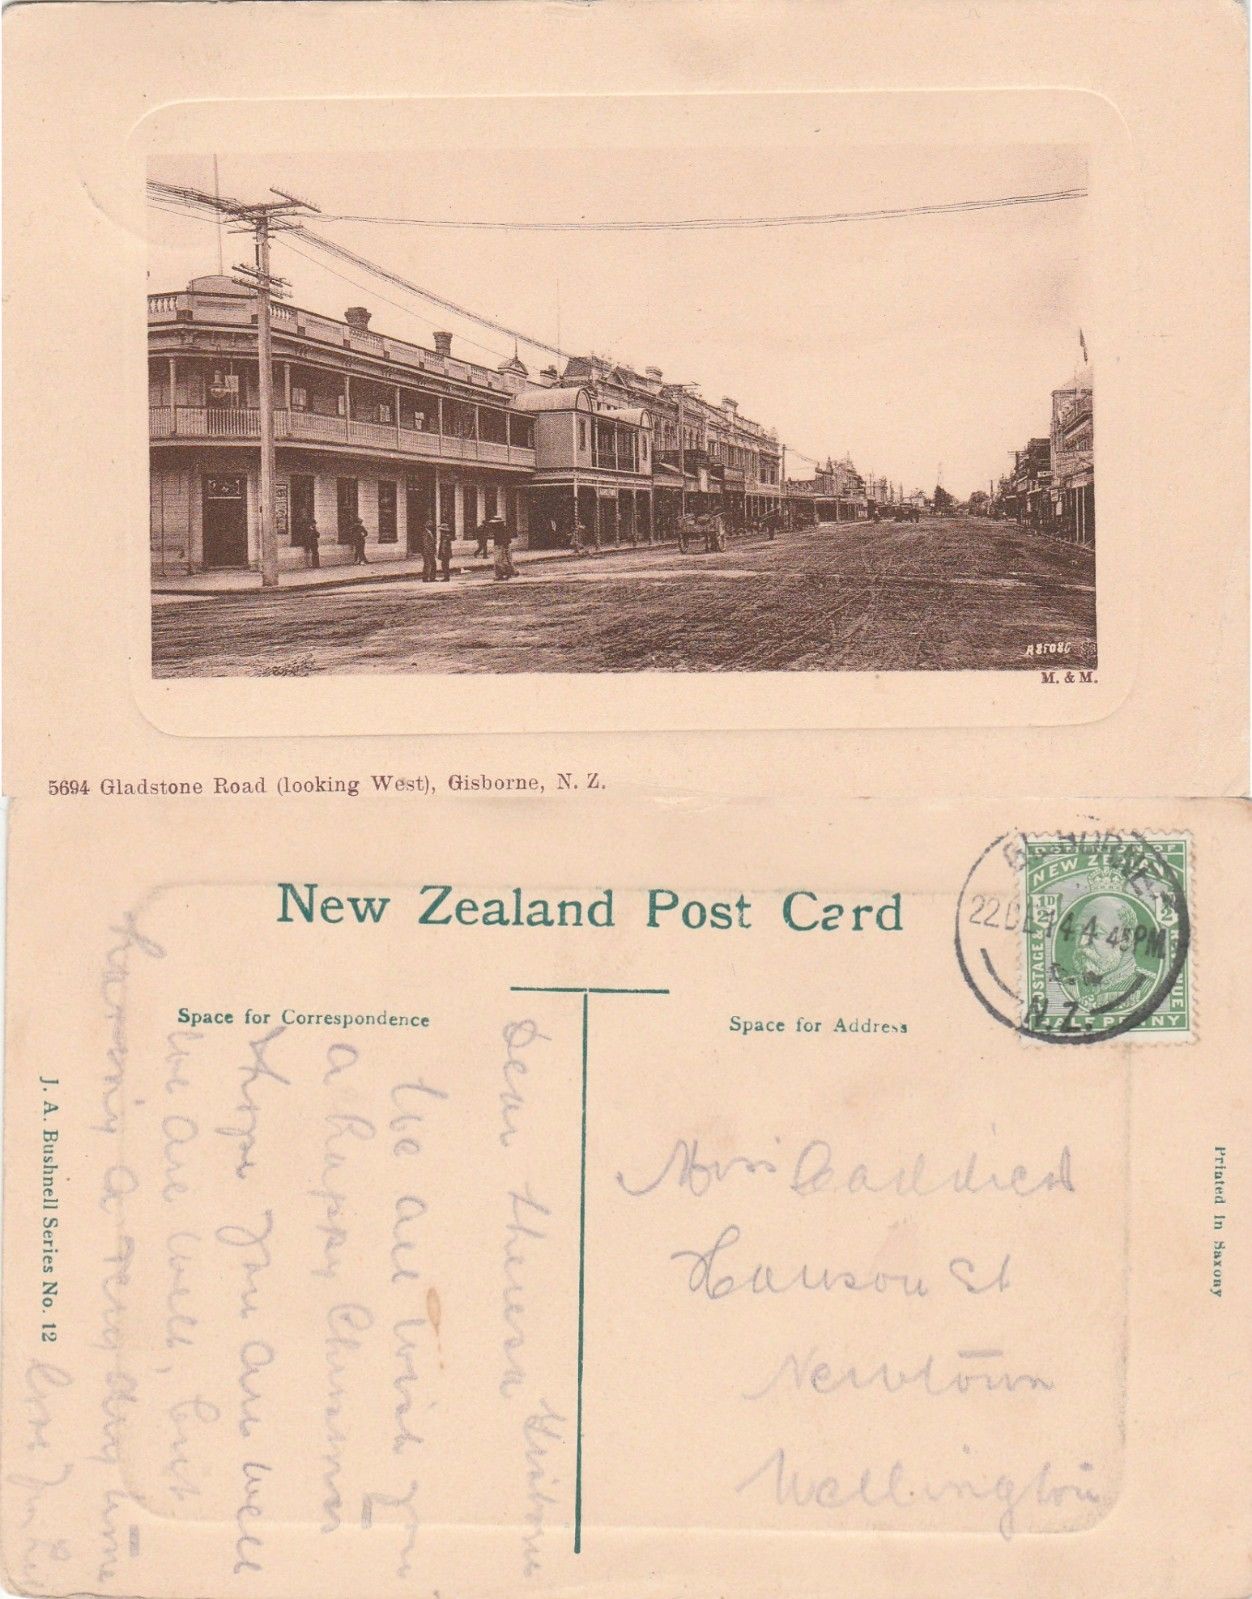 A85086
M. & M.
5694 Gladstone Road (looking West), Gisborne, N. Z.
New Zealand Post Card
Space for Correspondence
Space for Address
J. A. Bushnell Series No. 12
Printed in Saxony
GISBORNE
22 DE 14 4 45 PM
N.Z.
DOMINION OF
NEW ZEALAND
½D
½D
POSTAGE & REVENUE
HALF PENNY
Miss
Hanson St
Newtown
Wellington
Gisborne
Dear Theresa
We all wish you
a happy Christmas
Hope you are well
We are well, but
having a very dry time